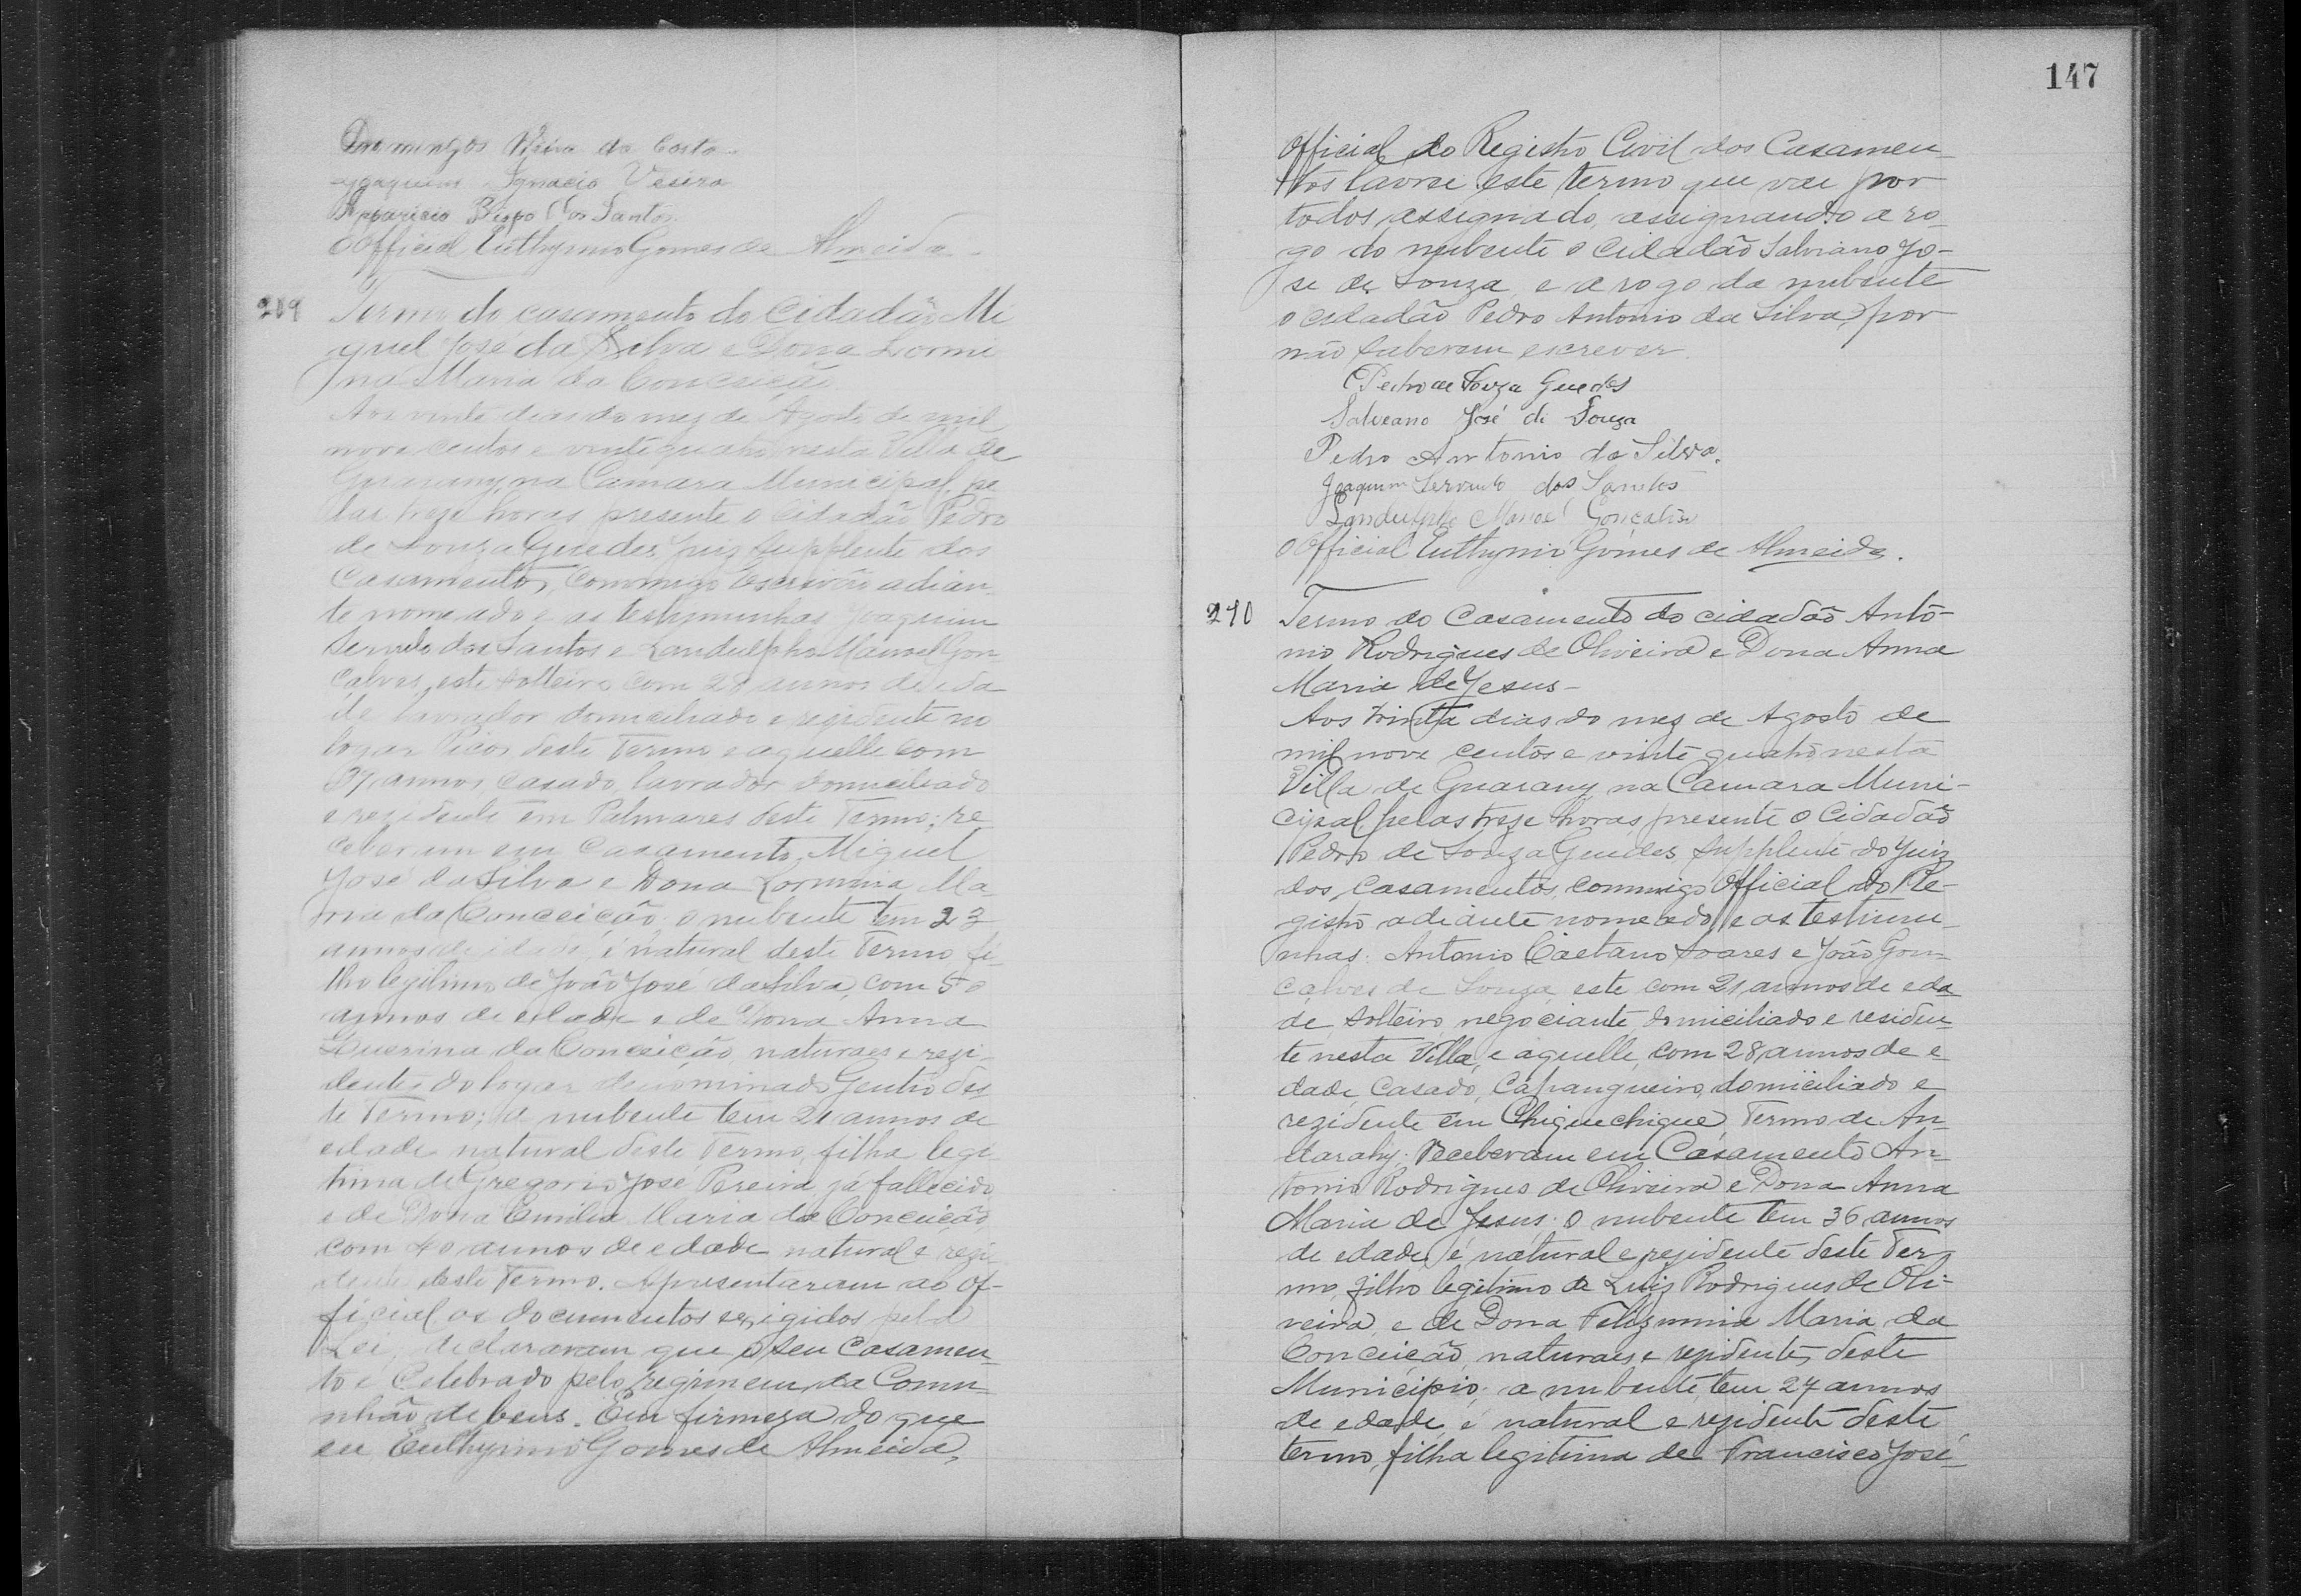 Domingos Vieira da Costa
Joaquim Ignacio Vieira
Apparicio Bispo dos Santos
O Official Euthymio Gomes de Almeida
209 Termo do casamento do Cidadão Mi
guel José da Silva e Dona Lormi
na Maria da Conceição
Aos vinte dias do mez de Agosto de mil
nove centos e vinte quatro nesta Villa de
Guarany, na Camara Municipal, pe
las treze horas presente o Cidadão Pedro
de Souza Guedes Juiz Supplente dos
Casamentos, commigo Escrivão adian
te nomeado e as testimunhas Joaquim
Servulo dos Santos e Landulpho Manoel Gon
calves, este solteiro com 28 annos de eda
de lavrador domiciliado e rezidente no
logar Picos deste Termo e aquelle com
37 annos, casado, lavrador domiciliado
e rezidente em Palmares deste Termo; re
ceberam em Casamento, Miguel
José da Silva e Dona Lormina Ma
ria da Conceição; o nubente tem 23
annos de idade, é natural deste Termo, fi
lho legitimo de João José da Silva, com 50
annos de edade e de Dona Anna
da Conceição, naturaes e rezi
dentes do logar denominado Gentio des
te Termo; a nubente tem 21 annos de
edade natural deste Termo, filha legi
tima de Gregorio José Pereira já fallecido
e de Dona Emilia Maria da Conceição
com 40 annos de edade natural e rezi
dente deste Termo. Apresentaram ao Of-
ficial os documentos exigidos pela
Lei, declararam que o seu Casamen
to é Celebrado pelo regimem da Comu
nhão de bens. Em firmeza do que
eu Euthymio Gomes de Almeida,
147
Official do Registro Civil dos Casamen
tos lavrei este termo que vae por
todos assignado, assignando a ro
go do nubente o cidadão Salviano Jo-
se de Souza e a rogo da nubente
o cidadão Pedro Antonio da Silva, por
não saberem escrever.
Pedro de Souza Guedes
Salveano José di Souza
Pedro Antonio da Silva.
Joaquim Servulo dos Santos
Landulpho Manoel Goncalves
O Official Euthymio Gomes de Almeida.
210 Termo do Casamento do cidadão Anto-
nio Rodrigues de Oliveira e Dona Anna
Maria de Jesus-
Aos trinta dias do mez de Agosto de
mil nove centos e vinte quatro nesta
Villa de Guarany na Camara Muni-
cipal, pelas treze horas, presente o Cidadão
Pedro de Souza Guedes, Supplente do Juiz
dos Casamentos, commigo Official do Re-
gistro adiante nomeado, e as testimu
nhas: Antonio Caetano Soares e João Gon
çalves de Souza, este com 21 annos de eda
de solteiro, negociante, domiciliado e residen
te nesta Villa, e aquelle, com 28 annos de e
dade, Casado, Capangueiro, domiciliado e
rezidente em Chiquechique, Termo de An
darahy; Receberam em Casamento An
tonio Rodrigues de Oliveira e Dona Anna
Maria de Jesus; o nubente tem 36 annos
de edade, é natural e rezidente deste Ter
mo, filho legitimo de Luiz Rodrigues de Oli-
veira, e de Dona Felizmina Maria da
Conceição, naturaes e rezidentes deste
Municipio; a nubente tem 24 annos
de edade é natural e rezidente deste
termo, filha legitima de Francisco José